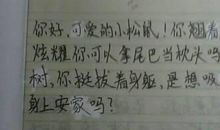 你好，可爱的小松鼠！你翘着
炫耀你可以拿尾巴当枕头吗
树，你挺拔着身躯，是想吸
身上安家吗？